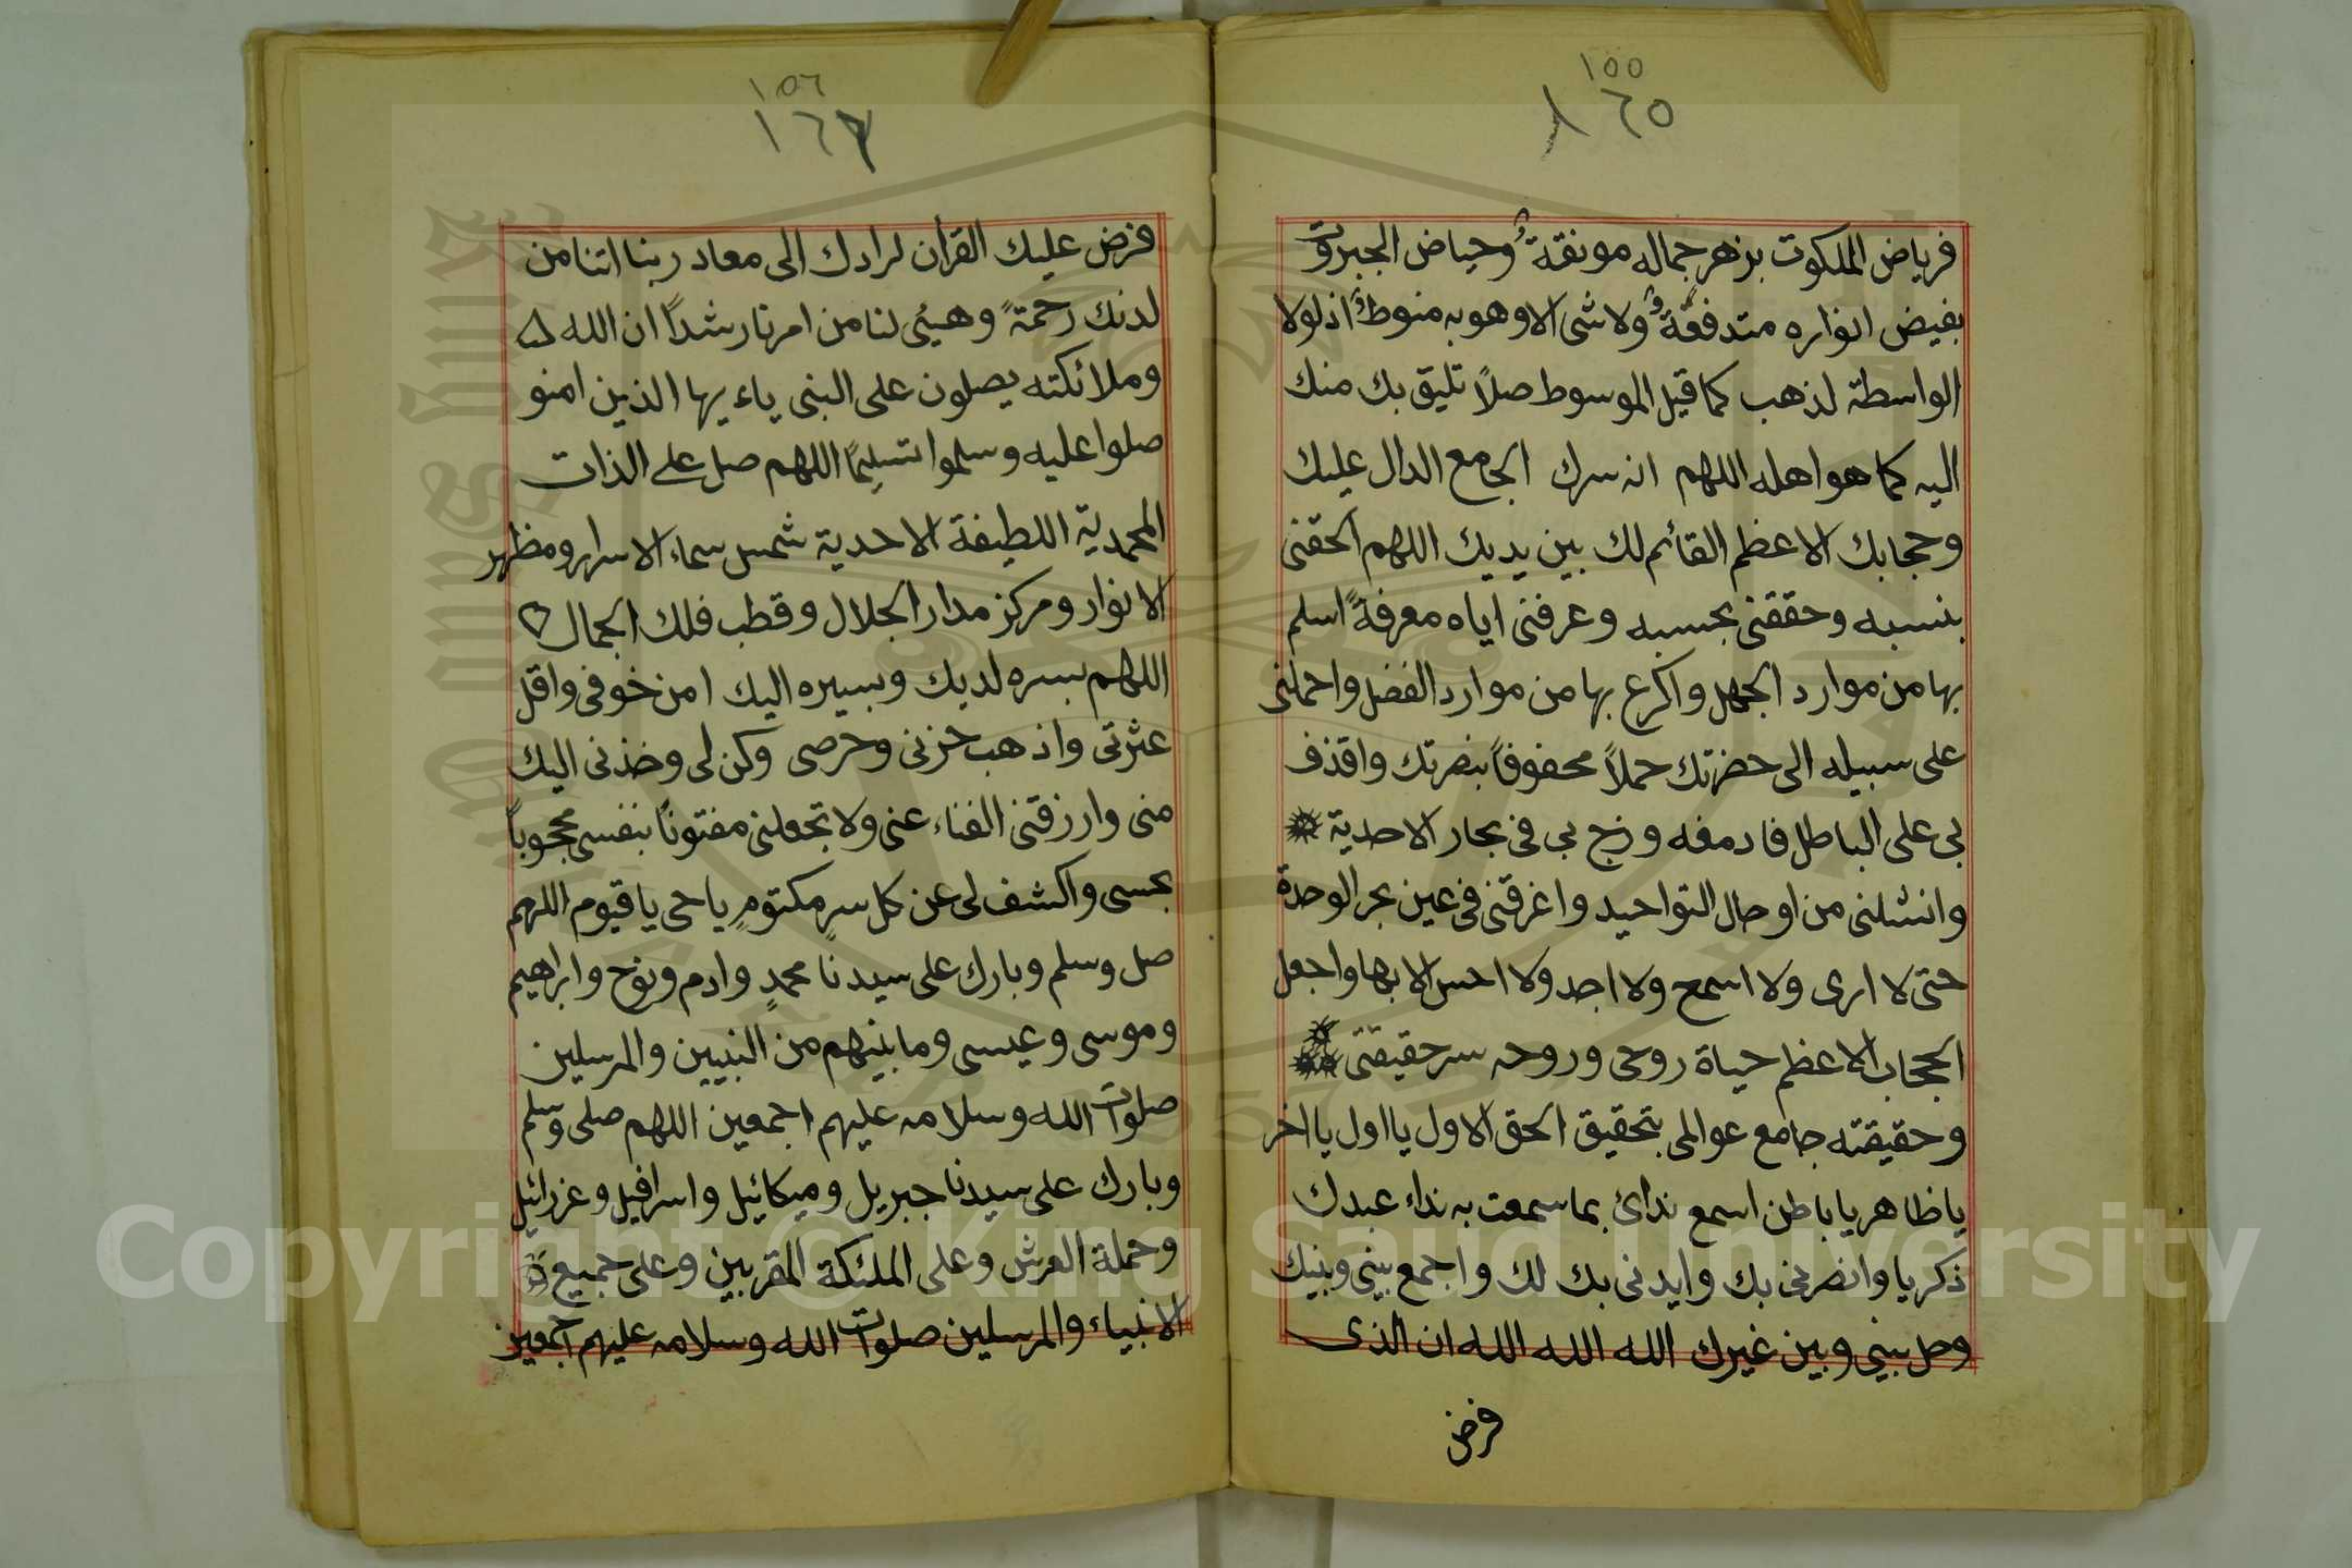 ١٥٥
١٦٥
فرياض الملكوت بزهر جماله مونقةٌ وحياض الجبروت
بفيض انواره متدفقةٌ ولا شى الا وهو به منوطٌ اذ لولا
الواسطة لذهب كما قيل الموسوط صلاً تليق بك منك
اليه كما هو اهله اللهم انه سرك الجامع الدال عليك
وحجابك الاعظم القائم لك بين يديك اللهم الحقنى
بنسبه وحققنى بحسبه وعرفنى اياه معرفةً اسلم
بها من موارد الجهل واكرع بها من موارد الفضل واحملنى
على سبيله الى حضرتك حملاً محفوفاً بنصرتك واقذف
بى على الباطل فادمغه وزج بى فى بحار الاحدية
وانشلنى من اوحال التواحيد واغرقنى فى عين بحر الوحدة
حتى لا ارى ولا اسمع ولا اجد ولا احس الا بها واجعل
الحجاب الاعظم حياة روحى وروحه سر حقيقتى
وحقيقته جامع عوالمى بتحقيق الحق الاول يا اول يا اخر
يا ظاهر يا باطن اسمع ندائ بما سمعت به نداء عبدك
ذكريا وانصرنى بك وايدنى بك لك واجمع بينى وبينك
وحل بينى وبين غيرك الله الله الله ان الذى
فرض
١٥٦
١٦٦
فرض عليك القران لرادك الى معاد ربنا اتنا من
لدنك رحمةً وهيئى لنا من امرنا رشداً ان الله
وملائكته يصلون على النبى ياء يها الذين امنو
صلوا عليه وسلموا تسليماً اللهم صل على الذات
المحمدية اللطيفة الاحدية شمس سماء الاسرار ومظهر
الانوار ومركز مدار الجلال وقطب فلك الجمال
اللهم بسره لديك وبسيره اليك امن خوفى واقل
عثرتى واذهب حزنى وحرصى وكن لى وخذنى اليك
منى وارزقنى الفناء عنى ولا تجعلنى مفتوناً بنفسى محجوباً
بحسى واكشف لى عن كل سرٍ مكتومٍ يا حى يا قيوم اللهم
صل وسلم وبارك على سيدنا محمدٍ وادم ونوح وابراهيم
وموسى وعيسى وما بينهم من النبيين والمرسلين
صلوات الله وسلامه عليهم اجمعين اللهم صلى وسلم
وبارك على سيدنا جبريل وميكائيل واسرافيل وعزرائيل
وحملة العرش وعلى الملئكة المقربين وعلى جميع
الانبياء والمرسلين صلوات الله وسلامه عليهم اجمعين
Copyright © King Saud University